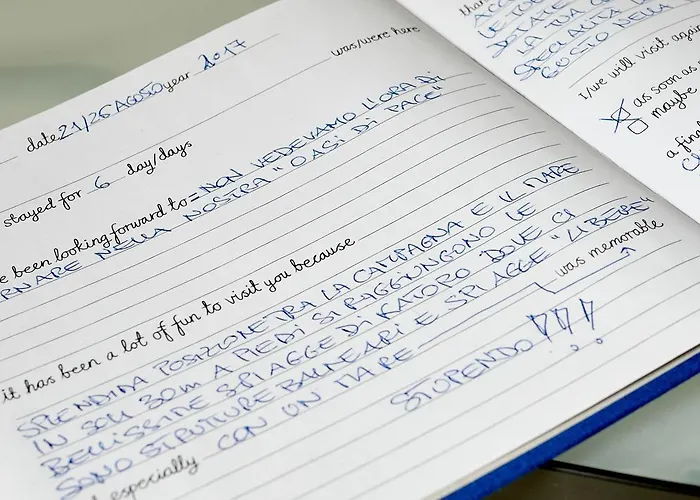 date 21/26 AGOSTO year 2017
was/were here
stayed for 6 day/days
e been looking forward to = NON VEDEVAMO L'ORA DI
RNARE NELLA NOSTRA "OASI DI PACE"
it has been a lot of fun to visit you because
SPLENDIDA POSIZIONE TRA LA CAMPAGNA E IL MARE
IN SOLI 30M A PIEDI SI RAGGIUNGONO LE
BELLISSIME SPIAGGE DI KATORO DOVE CI
SONO STRUTTURE BALNEARI E SPIAGGE "LIBERE"
especially CON UN MARE
was memorable
STUPENDO !!!
I/we will visit again
as soon as
maybe
a fina